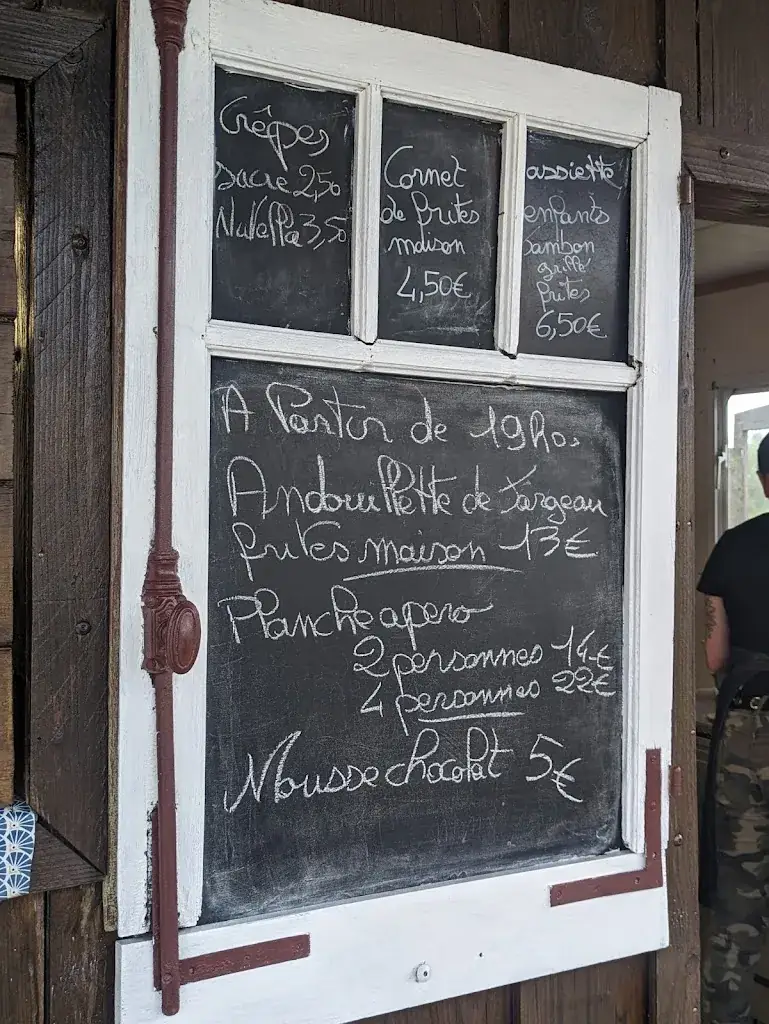 Crêpes
sucre 2,50
Nutella 3,50
Cornet
de frites
maison
4,50€
assiette
enfants
Jambon
grillé
frites
6,50€
A Partir de 19h00
Andouillette de Jargeau
frites maison 13€
Planche apero
2 personnes 14€
4 personnes 22€
Mousse chocolat 5€